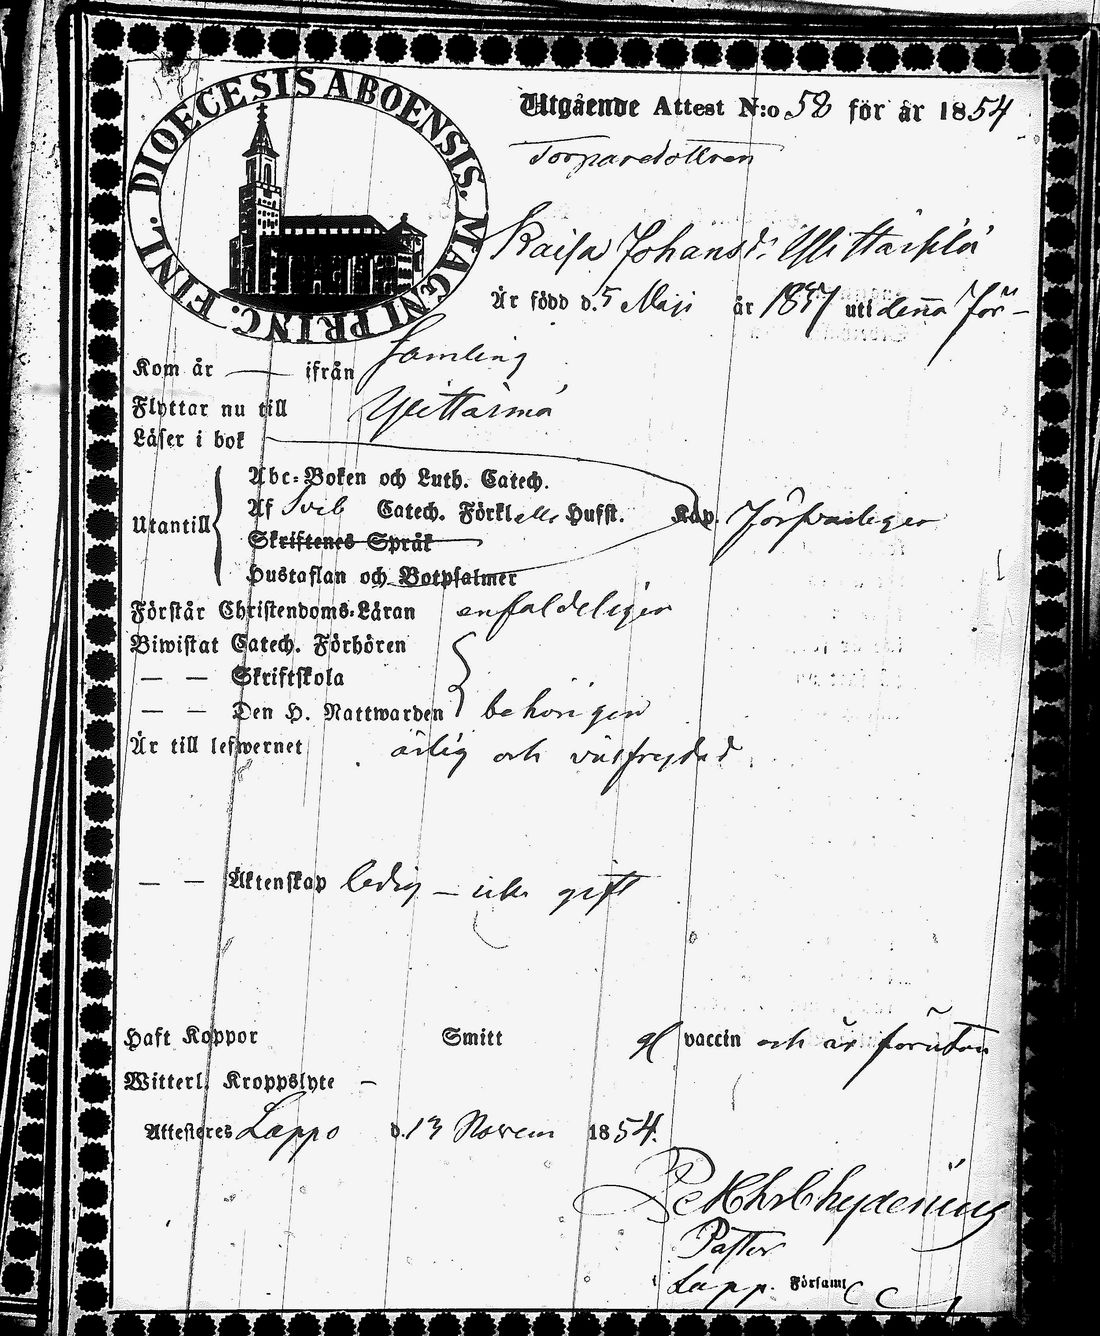 DIOECESIS ABOENSIS. MAGNI PRINC. FINL.
Utgående Attest N:o 58 för år 1854
Torparedottren
Kaisa Johansd:
Är född d. 5 Maji år 1837 uti denna För-
samling
Kom år — ifrån
Flyttar nu till
Läser i bok
Abc-Boken och Luth. Catech.
Utantill Af Sveb Catech. Förkl. Husst. Kap. försvarligen
Skriftenes Språk
Hustaflan och Botpsalmer
Förstår Christendoms-Läran enfaldeligen
Biwistat Catech. Förhören
— — Skriftskola
— — Den H. Nattwarden behörigen
Är till lefwernet ärlig och välfrejdad
— — Äktenskap ledig — icke gift
Haft Koppor Smitt vaccin och är förutan
Witterl. Kroppslyte —
Attesteres Lappo d. 13 Novem 1854.
Chydenius
Pastor
i Lapp. Församl